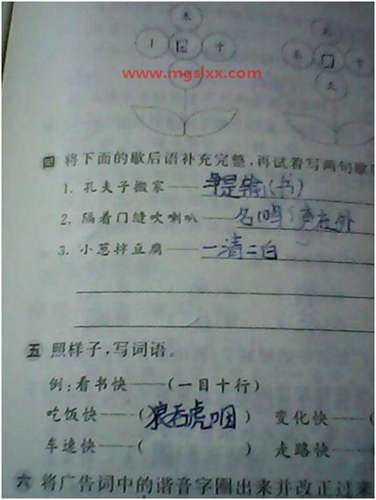 www.mgslxx.com
四 将下面的歇后语补充完整,再试着写两句歇
1. 孔夫子搬家——是输(书)
2. 隔着门缝吹喇叭——名鸣(声在外
3. 小葱拌豆腐——一清二白
五 照样子,写词语。
例:看书快——(一目十行)
吃饭快——(狼吞虎咽) 变化快——
车速快——( ) 走路快——
六 将广告词中的谐音字圈出来并改正过来